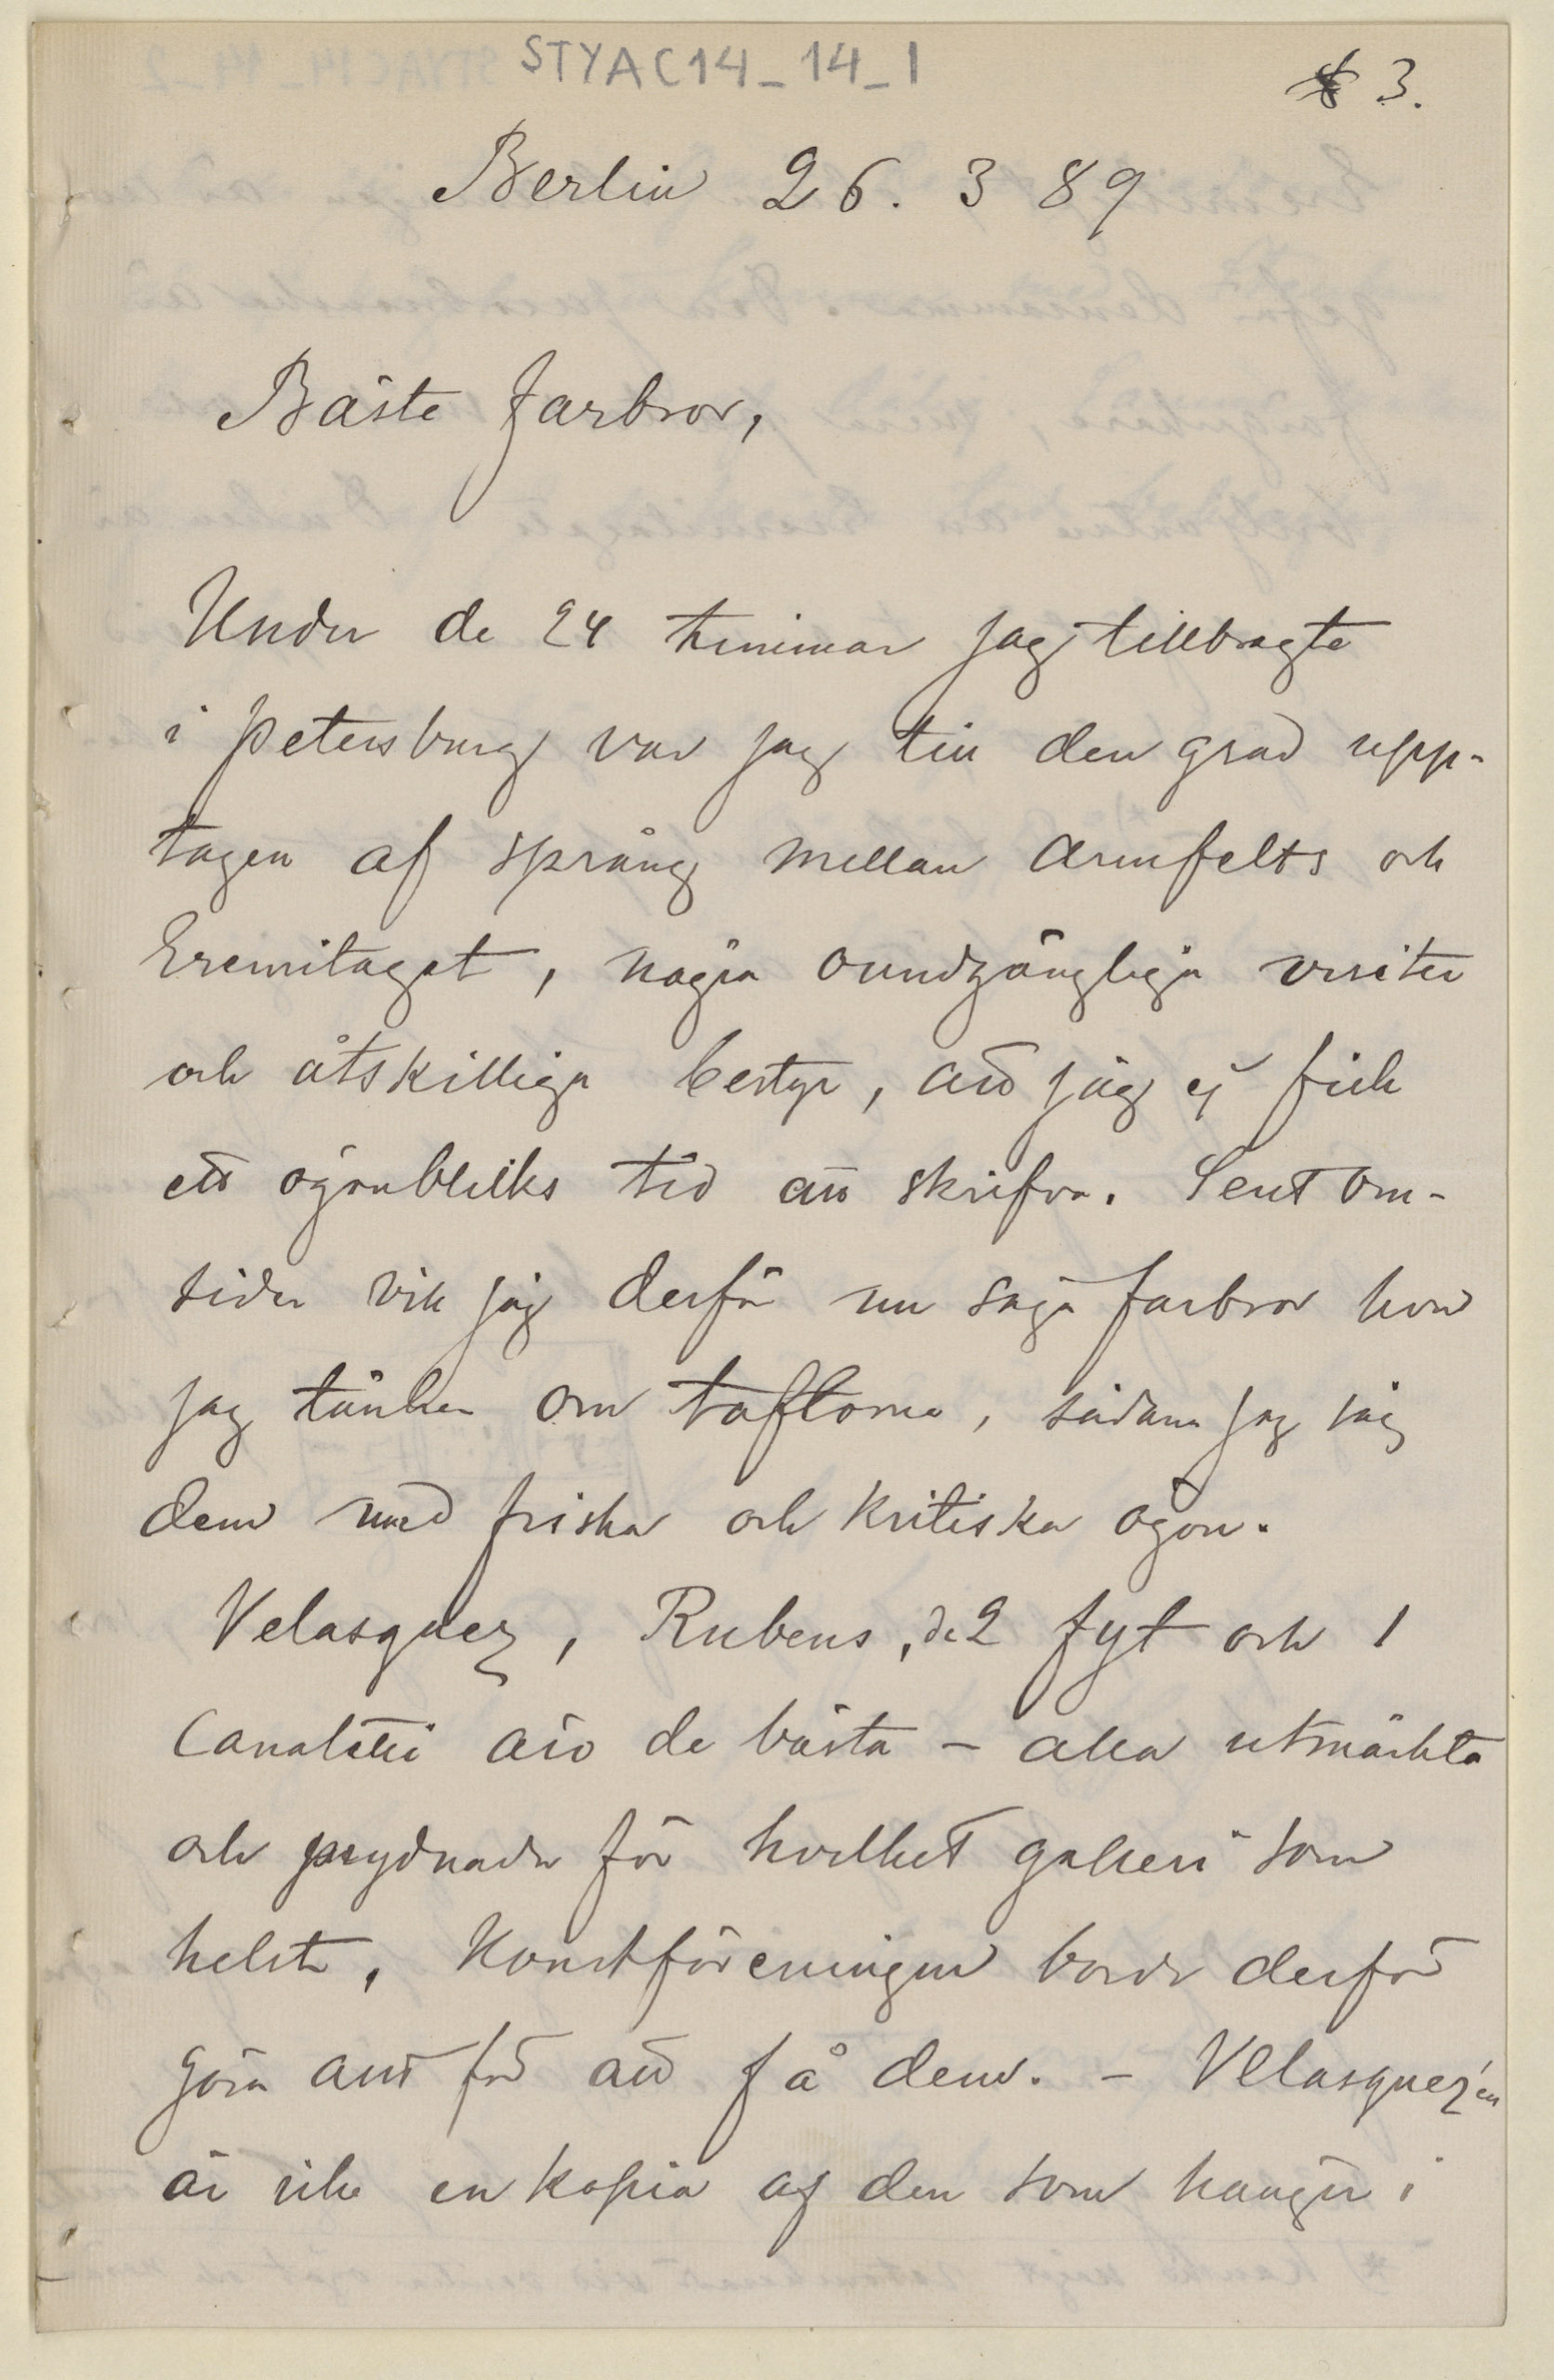 STYAC14_14_1
3.
Berlin 26. 3 89
Bäste farbror,
Under de 24 timmar jag tillbragte
i Petersburg var jag till den grad upp-
tagen af språng mellan Armfelts och
Eremitaget, några oundgängliga visiter
och åtskilliga bestyr, att jag ej fick
ett ögonblicks tid att skrifva. Sent om-
sider vill jag derför nu säga farbror hvad
jag tänker om taflorna, sådana jag såg
dem med friska och kritiska ögon.
Velasquez, Rubens, de 2 Fyt och 1
Canaletti äro de bästa – alla utmärkta
och prydnader för hvilket galleri som
helst. Konstföreningen borde derför
göra allt för att få dem. – Velasquez'en
är icke en kopia af den som hänger i